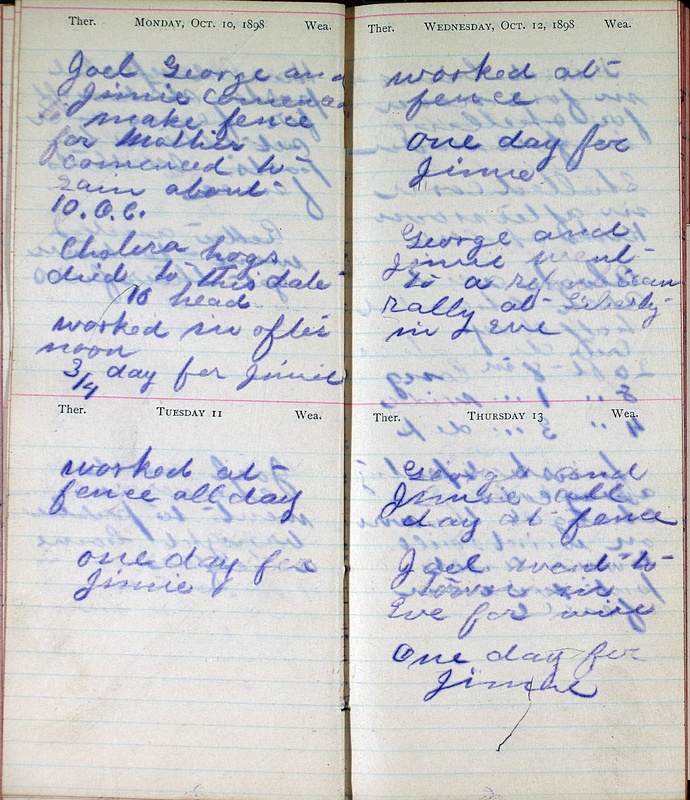 Ther. Monday, Oct. 10, 1898 Wea.
Joel George and
Jimie comenced
to make fence
for Mother
comenced to
rain about
10. O.C.
Cholera hogs
died to this date
16 head
worked in after
noon
3/4 day for Jimie
Ther. Tuesday 11 Wea.
worked at
fence all day
one day for
Jimie
Ther. Wednesday, Oct. 12, 1898 Wea.
worked at
fence
one day for
Jimie
George and
Jimie went
to a
rally at Liberty
in Eve
Ther. Thursday 13 Wea.
George and
Jimie all
day at fence
Joel went to
town in
Eve for wire
One day for
Jimie